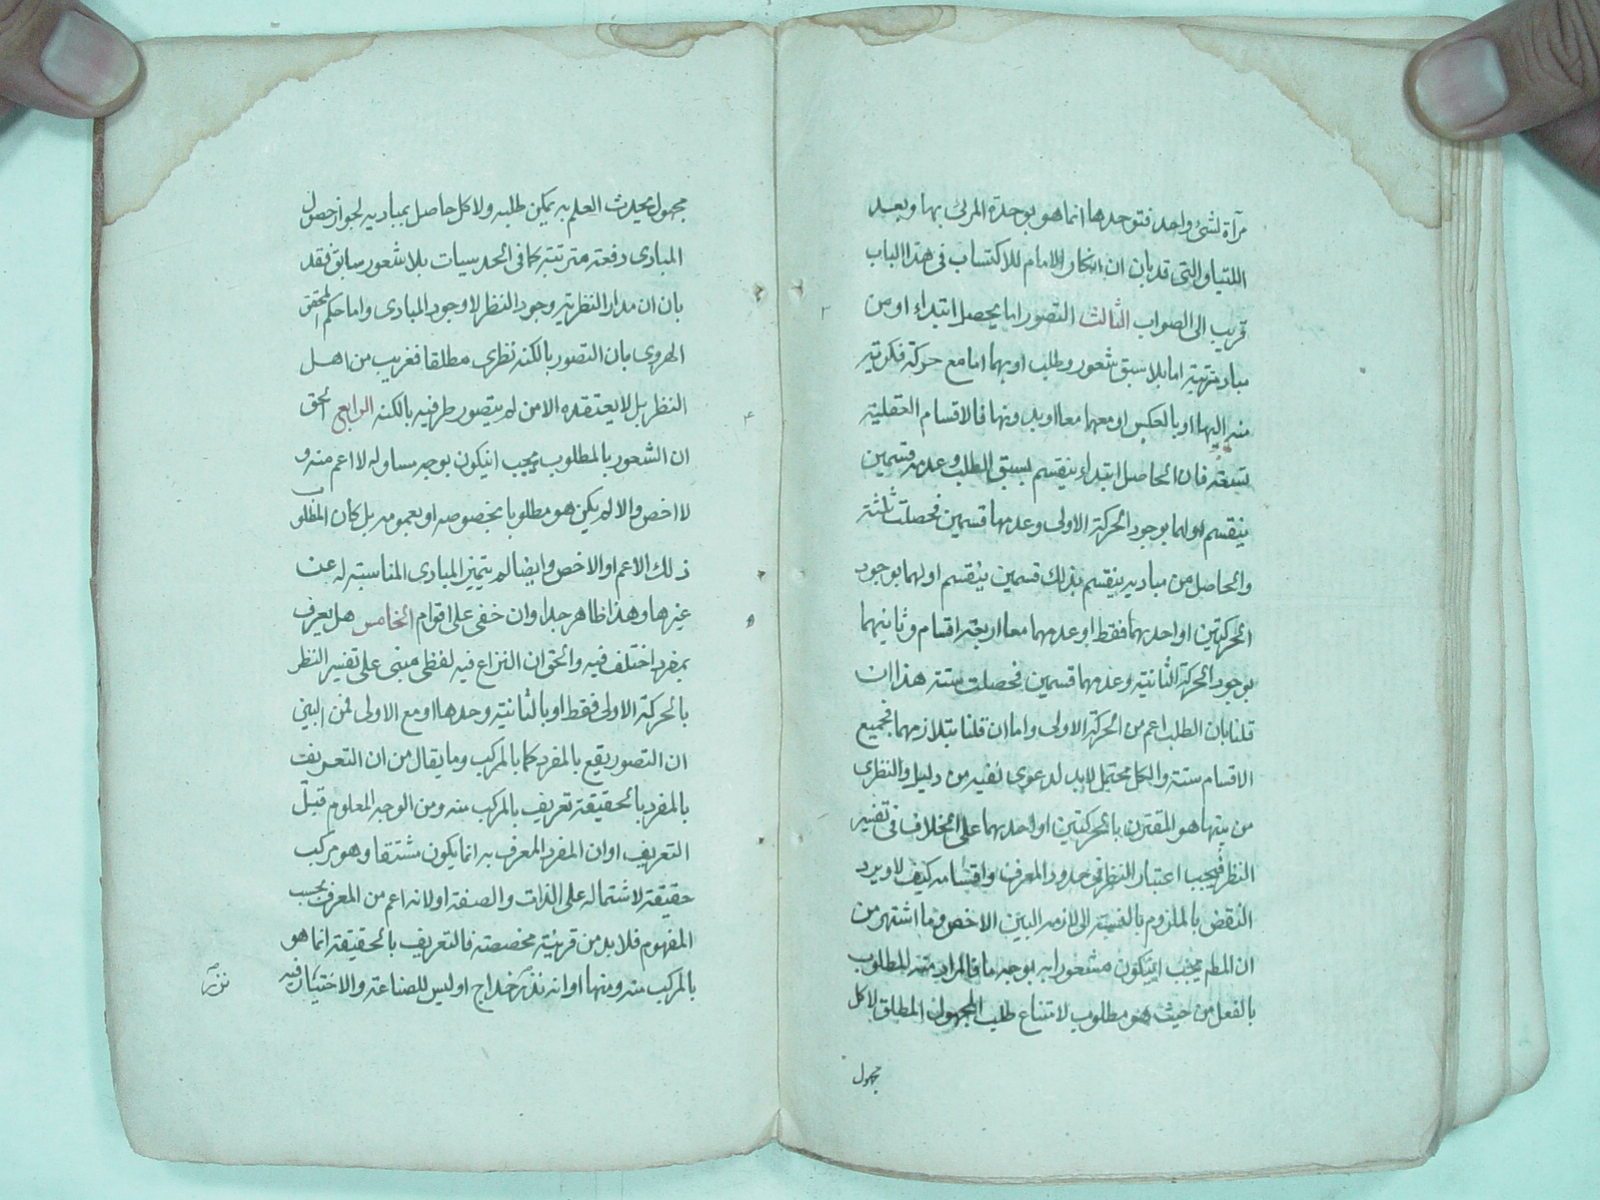 مرآة لشئ واحد فتوحدها انما هو بوحدة المرئى بها وبعد
اللتيا والتى قد بان ان انكار الامام للاكتساب فى هذا الباب
قريب الى الصواب الثالث التصور اما يحصل ابتداء او من
مباد مترتبة اما بلا سبق شعور وطلب او بهما اما مع حركة فكرية
منه اليها او بالعكس او معهما معا او بدونها فالاقسام العقلية
تسعة فان الحاصل ابتداء ينقسم بسبق الطلب وعدمه قسمين
ينقسم اولهما بوجود الحركة الاولى وعدمها قسمين فحصلت ثلثة
والحاصل من مباديه ينقسم بذلك قسمين ينقسم اولهما بوجود
الحركتين او احدهما فقط او عدمهما معا اربعة اقسام وثانيهما
بوجود الحركة الثانية وعدمها قسمين فحصلت ستة هذا ان
قلنا بان الطلب اعم من الحركة الاولى واما ان قلنا بتلازمهما فجميع
الاقسام ستة والكل محتمل لابد لدعوى تفيد من دليل والنظرى
من بينها هو المقترن بالحركتين او احدهما على الخلاف فى تفسير
النظر فيجب اعتبار النظر فى حدود المعرف واقسامه كيف لا ويرد
النقض بالملزوم بالنسبة الى لازمه البين الاخص وما اشتهر من
ان المطم يجب ان يكون مشعورا به بوجه ما فالمراد منه المطلوب
بالفعل من حيث هو مطلوب لامتناع طلب المجهول المطلق لا كل
مجهول
٣
مجهول يحدث العلم به يمكن طلبه ولا كل حاصل بمباديه لجواز حصول
المبادى دفعة مترتبة كما فى الحدسيات بلا شعور سابق فقد
بان ان مدار النظرية وجود النظر لا وجود المبادى واما حكم المحقق
الهروى بان التصور بالكنه نظرى مطلقا فغريب من اهل
النظر بل لا يعتقده الا من لم يتصور طرفيه بالكنه الرابع الحق
ان الشعور بالمطلوب يجب ان يكون بوجه مساو له لا اعم منه و
لا اخص والا لم يكن هو مطلوبا بخصوصه او بعمومه بل كان المطلوب
ذلك الاعم او الاخص وايضا لم يتميز المبادى المناسبة له عن
غيرها وهذا ظاهر جدا وان خفى على اقوام الخامس هل يعرف
بمفرد اختلف فيه والحق ان النزاع فيه لفظى مبنى على تفسير النظر
بالحركة الاولى فقط او بالثانية وحدها او مع الاولى فمن البين
ان التصور يقع بالمفرد كما بالمركب وما يقال من ان التعريف
بالمفرد بالحقيقة تعريف بالمركب منه ومن الوجه المعلوم قبل
التعريف او ان المفرد المعرف به انما يكون مشتقا وهو مركب
حقيقة لاشتماله على الذات والصفة او لانه اعم من المعرف بحسب
المفهوم فلا بد من قرينة مخصصة فالتعريف بالحقيقة انما هو
بالمركب منه ومنها او انه نذر خداج او ليس للصناعة والاختيار فيه
٤